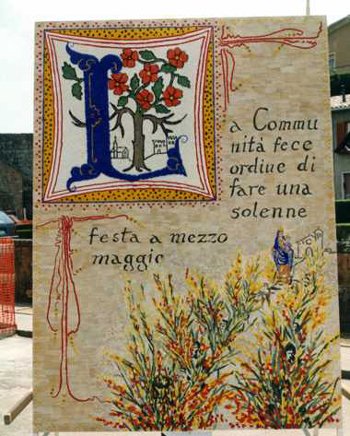 La Commu
nità fece
ordine di
fare una
solenne
festa a mezzo
maggio